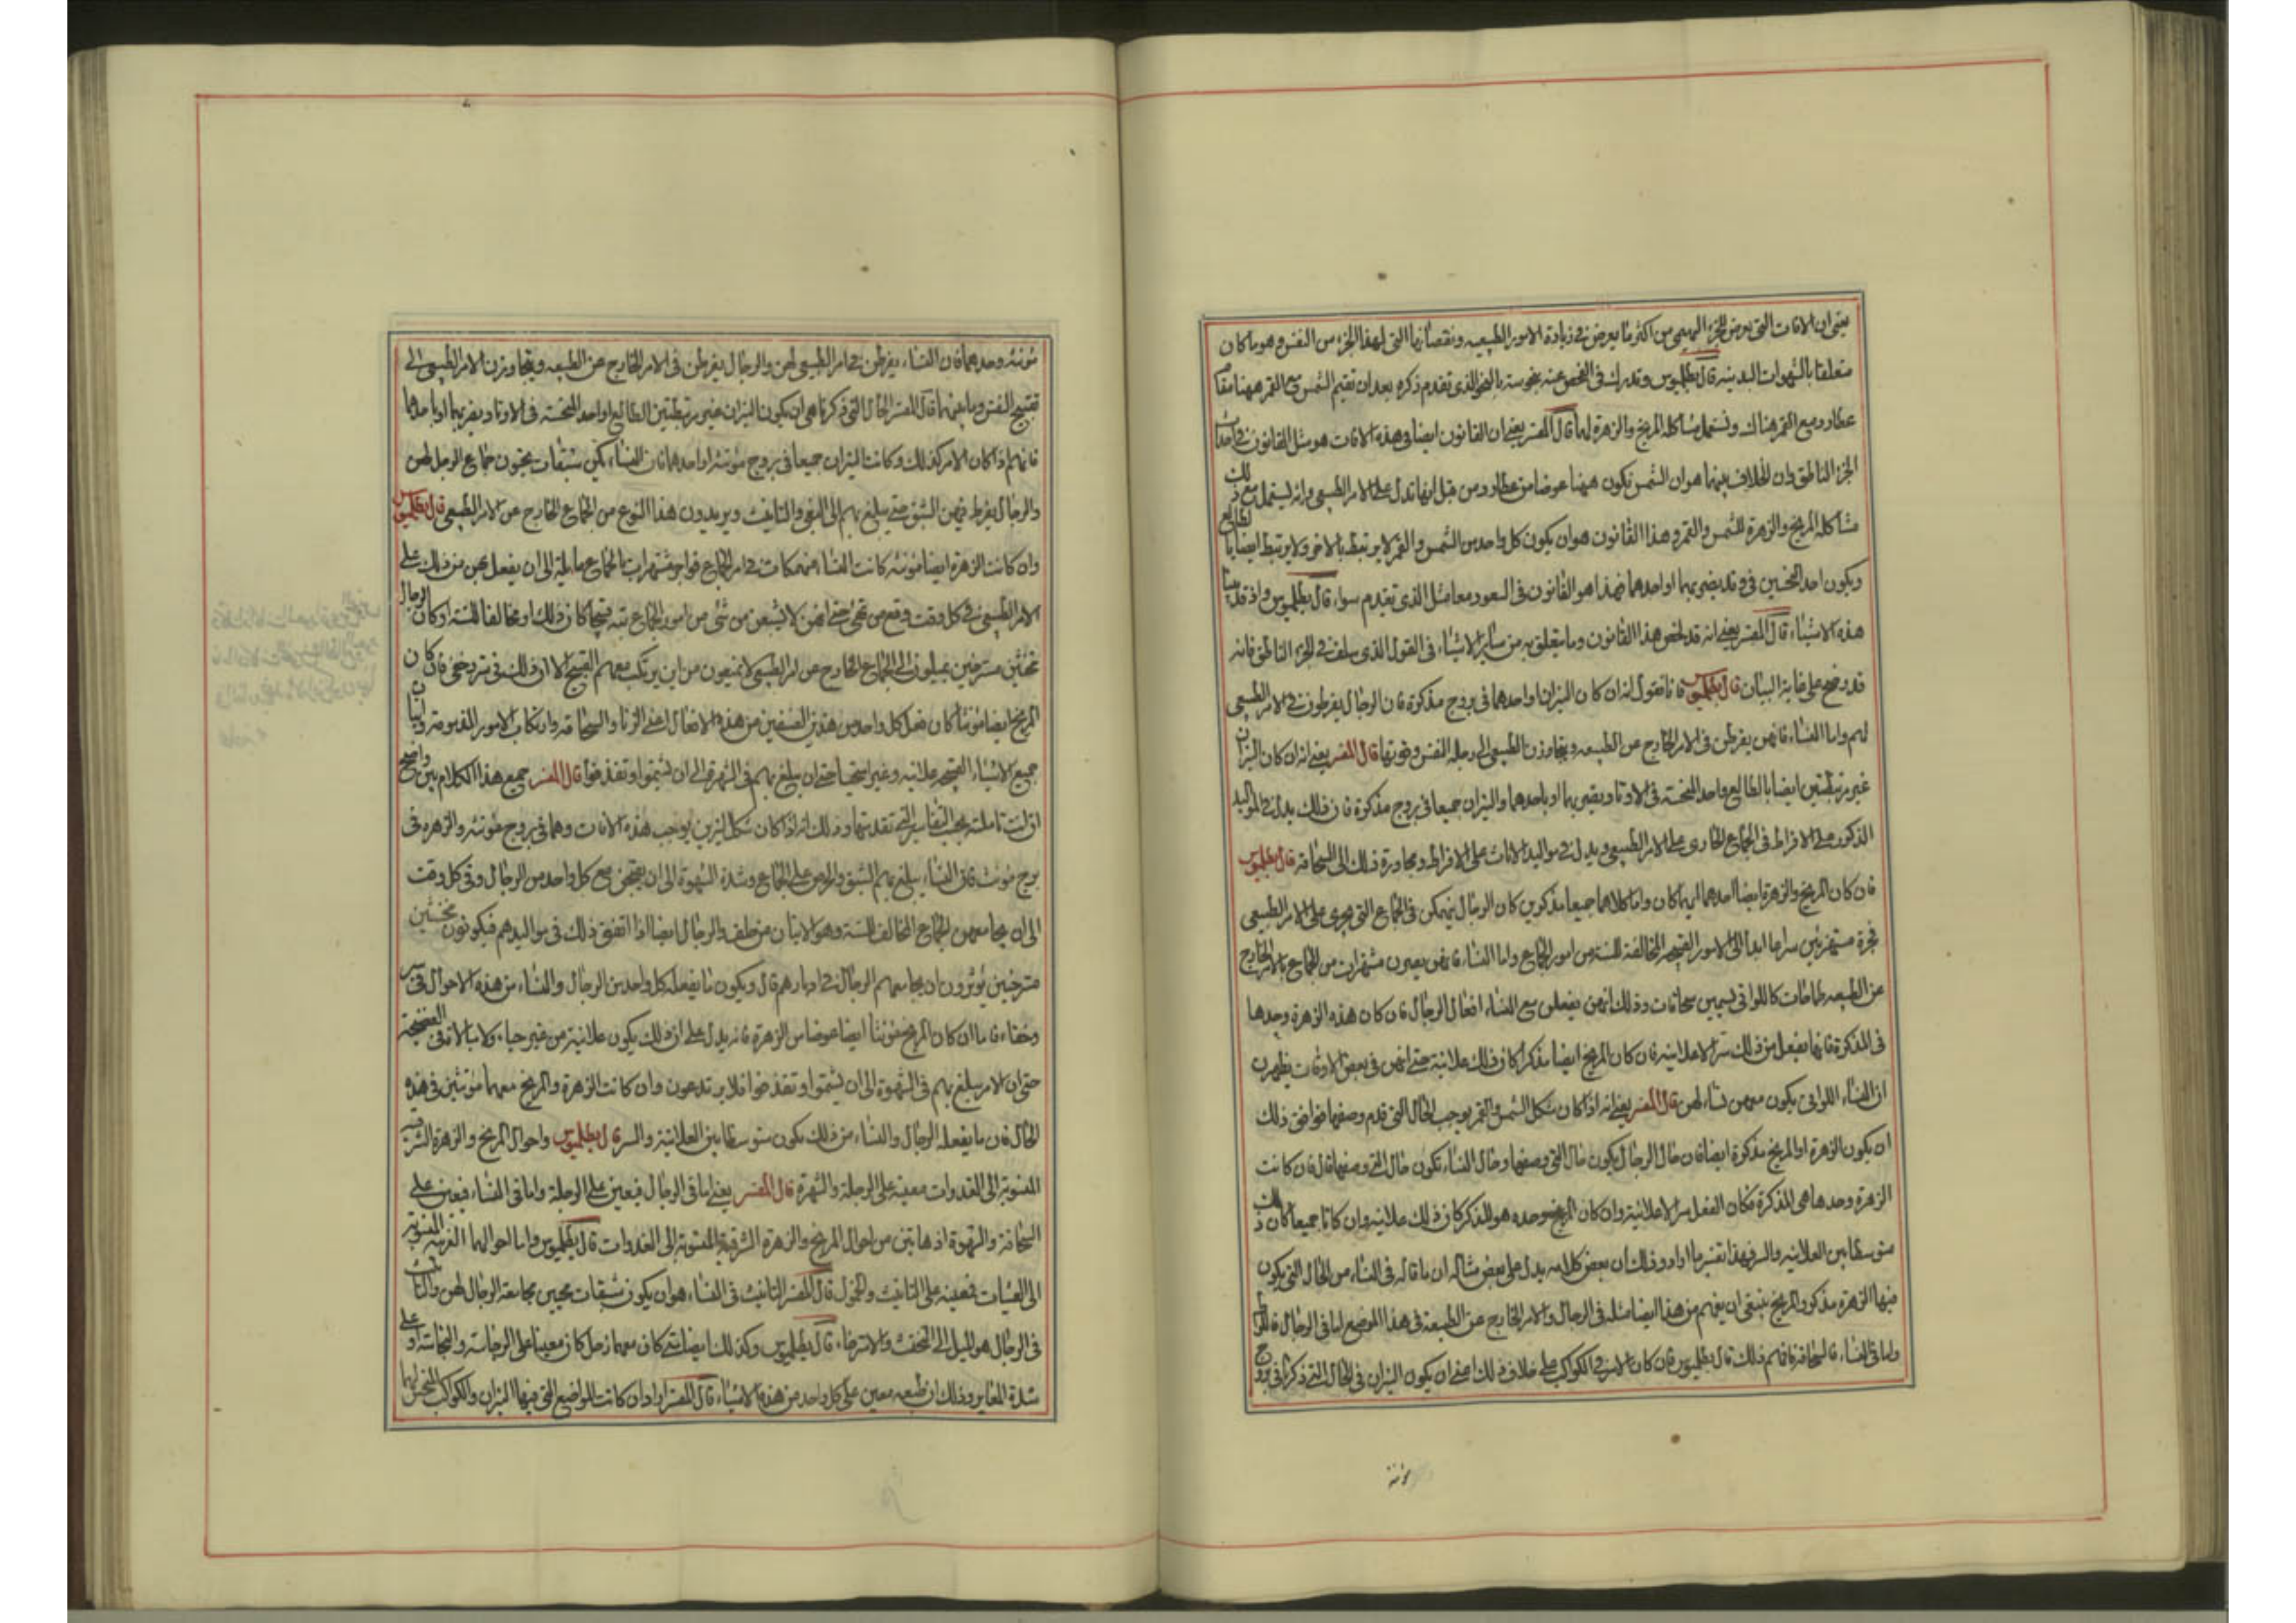 يعنى ان الافات التى تعرض للجزء البهيمى من اكثر ما يعرض فى زيادة الامور الطبيعيه ونقصانها التى لهذا الجزء من النفس وهو ما كان
متعلقا بالشهوات البدنيه قال بطلميوس وقد يدرك فى الفحص عنه بنحو شبيه بالنحو الذى تقدم ذكره بعد ان نقيم الشمس مع القمر ههنا مقام
عطارد مع القمر هناك ونستعمل مشاكله المريخ والزهرة لهما قال المفسر يعنى ان القانون ايضا فى هذه الافات هو مثل القانون فى افات
الجزء الناطق وان الخلاف بينهما هو ان الشمس تكون ههنا عوضا من عطارد ومن قبل انها تدل على الامر الطبيعى وانه يستعمل مع ذلك
مشاكله المريخ والزهرة للشمس والقمر وهذا القانون هو ان يكون كل واحد من الشمس والقمر لا يرتبط بالاخر ولا يرتبط ايضا بالطالع
ويكون احد النحسين فى وتد يضر بهما او احدهما فهذا هو القانون فى السعود معا مثل الذى تقدم سواء قال بطلميوس واذ قد بينا
هذه الاشياء قال المفسر يعنى انه قد لخص هذا القانون وما يتعلق به من سائر الاشياء فى القول الذى سلف فى الجزء الناطق فانه
قد وضح على غاية البيان قال بطلميوس فانا نقول انه ان كان النيران او احدهما فى بروج مذكرة فان الرجال يفرطون فى الامر الطبيعى
لهم واما النساء فانهن يفرطن فى الامر الخارج عن الطبيعه ويتجاوزن الطبيعى الى رجله النفس وقوتها قال المفسر يعنى انه ان كان النيران
غير مرتبطين ايضا بالطالع واحد النحسه فى الاوتاد ويضر بهما او باحدهما والنيران جميعا فى بروج مذكرة فان ذلك يدل فى المواليد
الذكور على الافراط فى الجماع الجارى على الامر الطبيعى ويدل فى مواليد الاناث على الافراط ومجاوزة ذلك الى السحاقه قال بطلميوس
فان كان المريخ والزهرة ايضا احدهما ايهما كان واما كلاهما جميعا مذكرين كان الرجال منهمكين فى الجماع التى يجرى على الامر الطبيعى
فجرة مستهترين سراعا ابدا الى الامور القبيحه المخالفه للسنه من امور الجماع واما النساء فانهن يصرن مشتهرات من الجماع بالامر الخارج
عن الطبيعه طماحات كاللواتى يسمين سحاقات وذلك انهن يفعلن مع النساء افعال الرجال فان كان هذه الزهرة وحدها
فى المذكرة فانها تفعل من ذلك سرا لا علانيه فان كان المريخ ايضا مذكرا كان ذلك علانية حتى انهن فى بعض الاوقات يظهرن
ان النساء اللواتى يكون معهن نساء لهن قال المفسر يعنى انه اذا كان شكل الشمس والقمر يوجب الحال التى قدم وصفها فوافق ذلك
ان يكون الزهرة او المريخ مذكرة ايضا فان حال الرجال يكون حال التى وصفها وحال النساء تكون حال التى وصفها قال فان كانت
الزهرة وحدها هى المذكرة فكان الفعل سرا لا علانية وان كان المريخ وحده هو المذكر كان ذلك علانيه وان كانا جميعا كان ذلك
متوسطا بين العلانيه والسر فهذا تفسير ما اراد وذلك ان بعض كلامه يدل على بعض مثاله ان ما قاله فى النساء من الحال التى يكون
فيها الزهرة مذكر والمريخ ينبغى ان يفهم من هذا ايضا مثله فى الرجال والامر الخارج عن الطبيعة فى هذا الموضع اما فى الرجال فاللواط
واما فى النساء فالسحاقه فافهم ذلك قال بطلميوس فان كان الامر فى الكواكب على خلاف ذلك اعنى ان يكون النيران فى الحال التى ذكرنا فى بروج
مؤنثه
مؤنثه وحدهما فان النساء يفرطن فى امر الطبيعى لهن والرجال يفرطن فى الامر الخارج عن الطبيعه ويتجاوزن الامر الطبيعى الى
تفتيح النفس وما بينهما قال المفسر الحال التى ذكرنا هى ان يكون النيران غير مرتبطين الطالع او احد النحسه فى الاوتاد يضر بهما او باحدهما
فانهم اذا كان الامر كذلك وكانت النيران جميعا فى بروج مؤنثه او احدهما فان النساء يكن شبقات يحبون جماع الرجل لهن
والرجال يفرط فيهن الشبق حتى يبلغ بهم الى البغى والتانيث ويريدون هذا النوع من الجماع الخارج عن الامر الطبيعى قال بطلميوس
وان كانت الزهرة ايضا مؤنثه كانت النساء منهمكات فى امر الجماع فواجر مشتهرات الجماع مايلة الى ان يفعل بهن من ذلك على
الامر الطبيعى فى كل وقت وقع من شئ حتى انهن لا يشبعن من شئ من امور الجماع بته قبيحا كان ذلك او مخالفا للسنه او كان الرجال
مخنثين مسترخين يميلون الى الجماع الخارج عن امر الطبيعى لا يمتنعون من ان يرتكب معهم القبيح الا ان ذلك فى ستر وخفى فان كان
المريخ ايضا مؤنثا كان فعل كل واحد من هذين الصنفين من هذه الافعال اعنى الزنا والسحاقه وارتكاب الامور المذمومة واتيان
جميع الاشياء القبيحه علانيه وغير استحيا حتى ان يبلغ بهم فى الشهرة الى ان يشتموا وتقذفوا قال المفسر جميع هذا الكلام بين واضح
ان انت تاملته بحسب التفاسير التى تقدمتها وذلك انه اذا كان شكل النيرين يوجب هذه الافات وهما فى بروج مؤنثه والزهره فى
برج مؤنث فان النساء يبلغ بهم الشبق والحرص على الجماع وشدة الشهوة الى ان يفتضحن مع كل واحد من الرجال وفى كل وقت
الى ان يجامعهن الجماع المخالف للسنه وهو الاتيان من خلف والرجال ايضا اذا اتفق ذلك فى مواليدهم فيكونون مخنثين
مسترخين يؤثرون ان يجامعهم الرجال فى ادبارهم قال ويكون ما يفعله كل واحد من الرجال والنساء من هذه الاحوال فى ستر
وخفاء فاما ان كان المريخ مؤنثا ايضا عوضا من الزهرة فانه يدل على ان ذلك يكون علانية من غير حياء ولا مبالاة فى الفضيحة
حتى ان الامر يبلغ بهم فى الشهوة الى ان يشتموا وتقذفوا فلا يرتدعون وان كانت الزهرة والمريخ معهما مؤنثين فى هذه
الحال فان ما يفعله الرجال والنساء من ذلك يكون متوسطا بين العلانية والسر قال بطلميوس واحوال المريخ والزهرة الشرقيه
المنسوبة الى الغدوات معينه على الرجلة والشهرة قال المفسر يعنى اما فى الرجال فيعين على الرجلة واما فى النساء فيعين على
السحاقة والشهوة اذ هاتين من احوال المريخ والزهرة الشرقية المنسوبة الى الغدوات قال بطلميوس واما احوالهما الغربيه المنسوبه
الى العشيات فمعينه على التانيث والخمول قال المفسر التانيث فى النساء هو ان يكون شبقات محبين مجامعة الرجال لهن والتانيث
فى الرجال هو الميل الى التخنث والاسترخاء قال بطلميوس وكذلك ايضا متى كان معهما زحل كان معينا على الرجاسة والنجاسة او على
شدة المعاير وذلك ان طبيعه معين على كل واحد من هذه الاشياء قال المفسر اراد ان كانت المواضع التى فيها النيران والكواكب النحس لهما